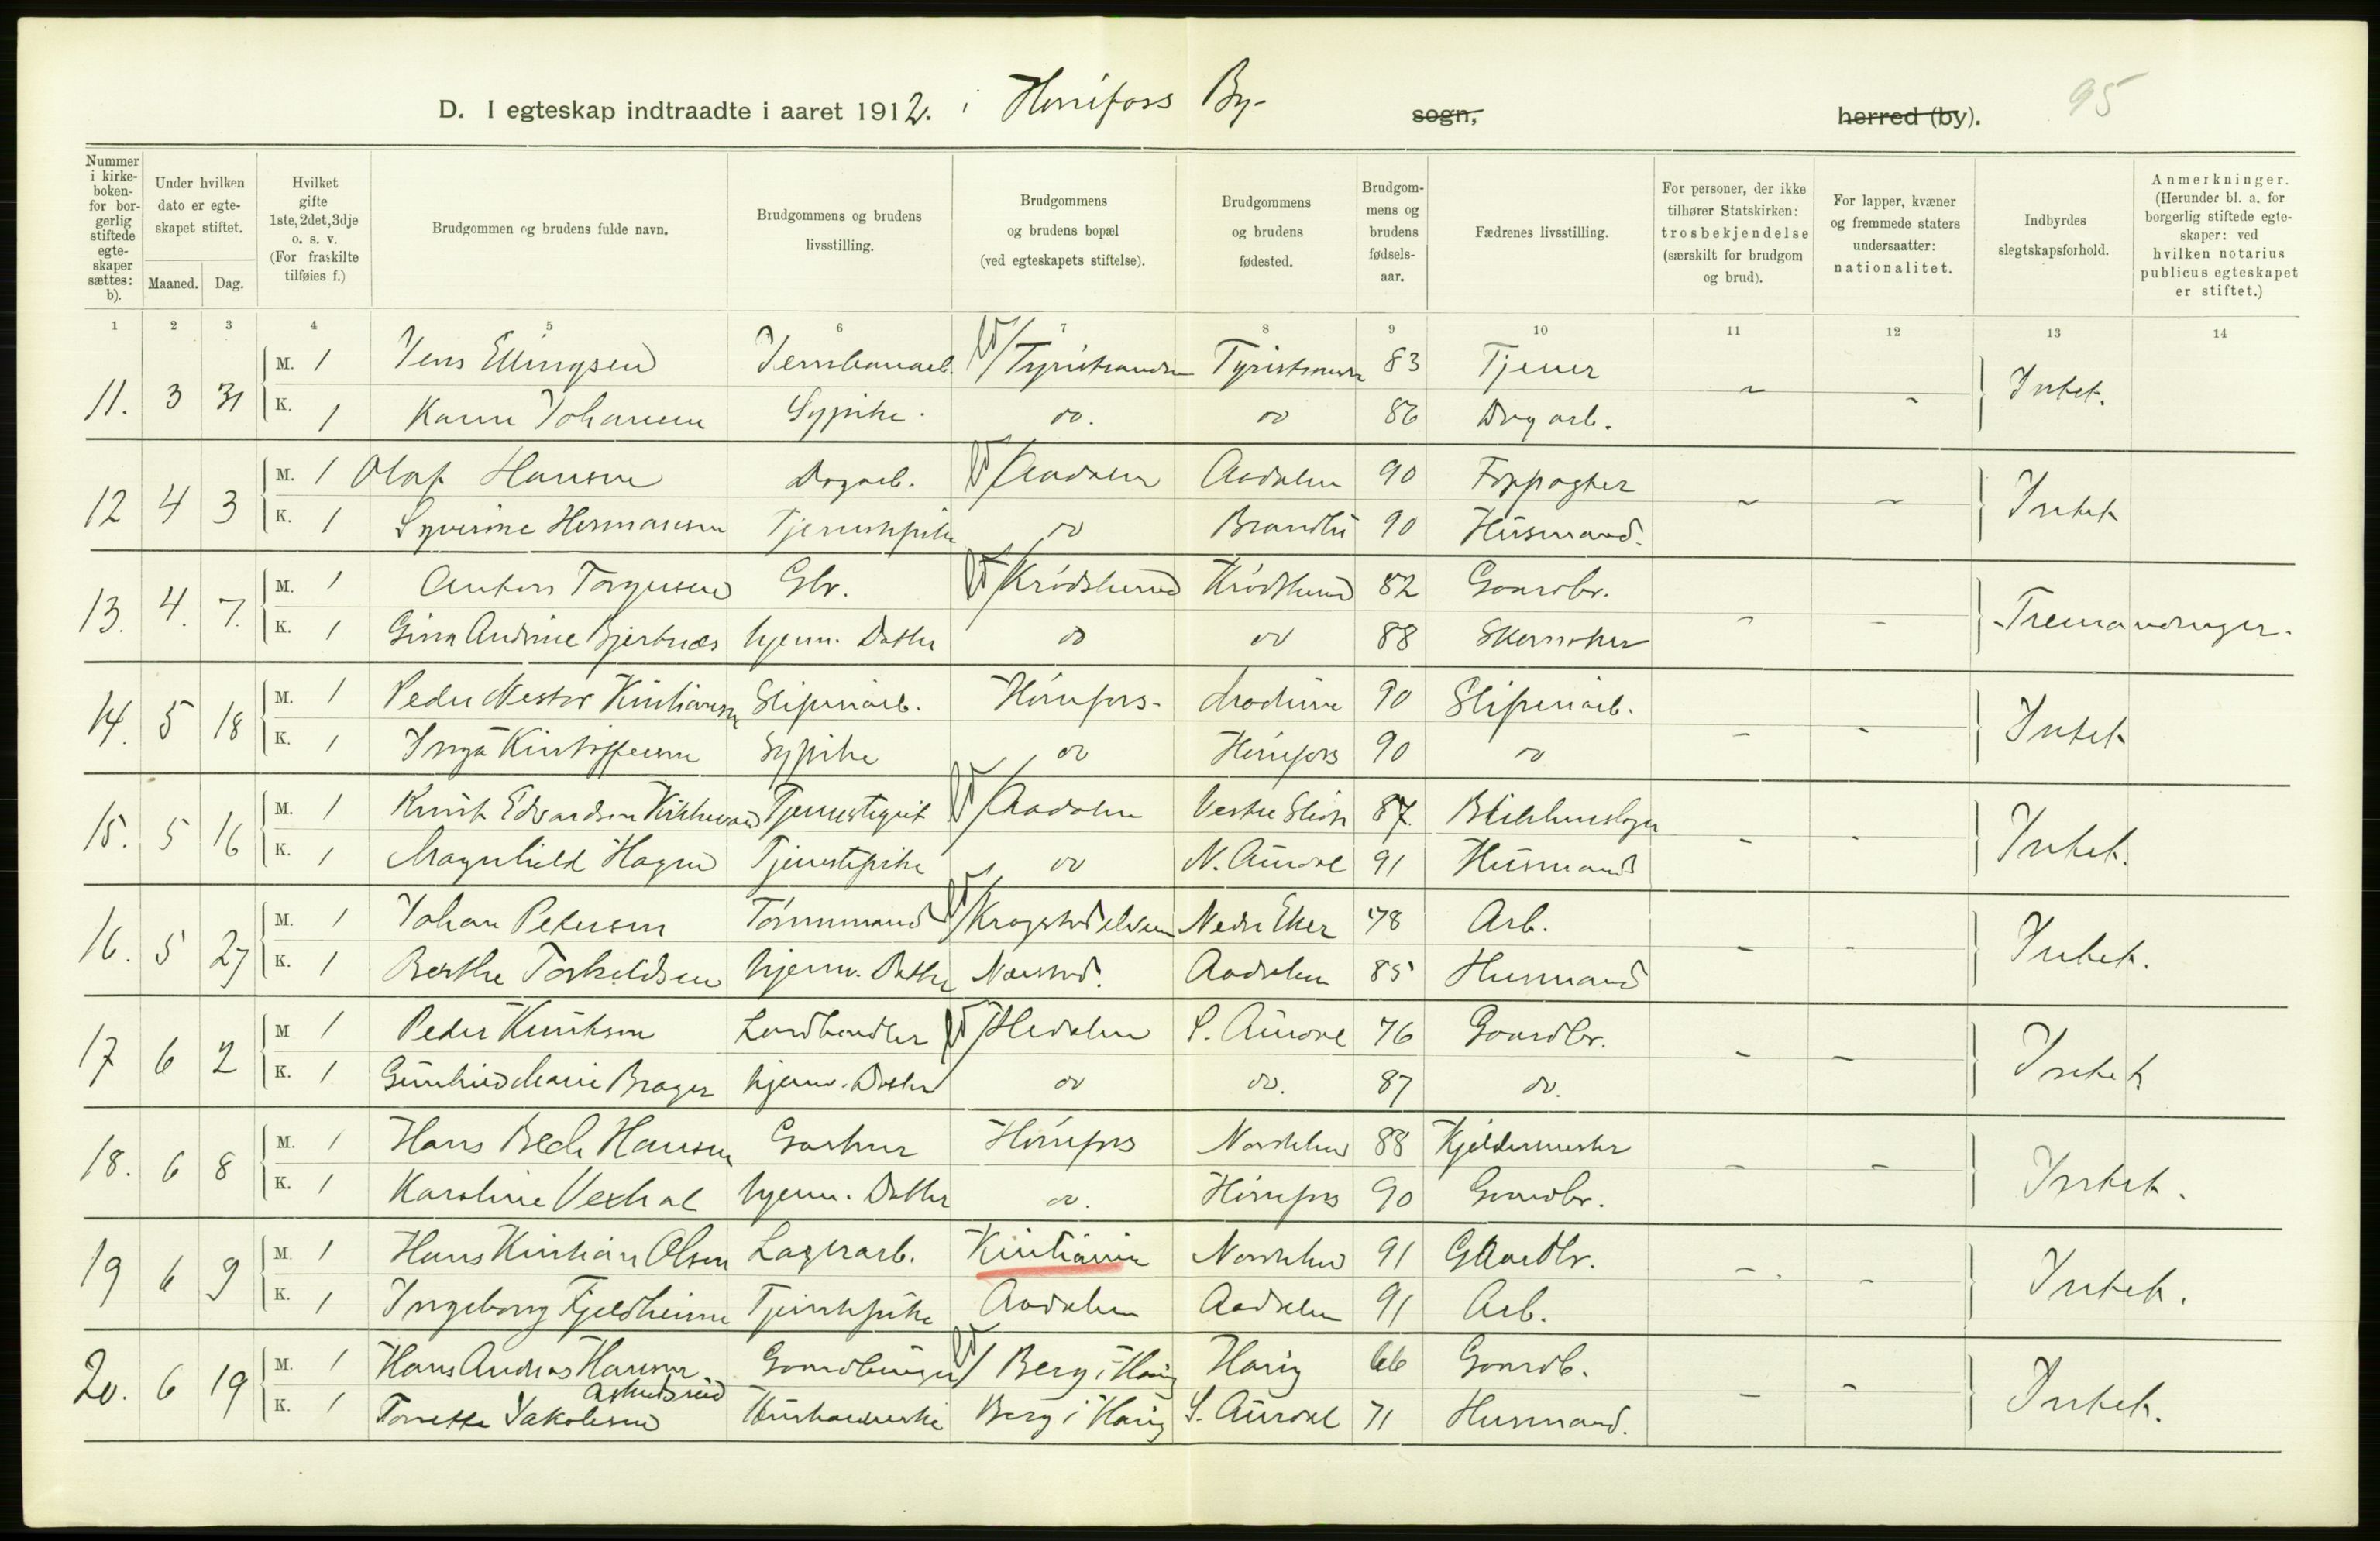 D. I egteskap indtraadte i aaret 1912. i Hønefoss By- sogn, herred (by). 95
Nummer i kirkeboken- for borgerlig stiftede egteskaper sættes: b).
Under hvilken dato er egteskapet stiftet.
Maaned. Dag.
Hvilket gifte 1ste, 2det, 3dje o. s. v. (For fraskilte tilføies f.)
Brudgommen og brudens fulde navn.
Brudgommens og brudens livsstilling.
Brudgommens og brudens bopæl (ved egteskapets stiftelse).
Brudgommens og brudens fødested.
Brudgommens og brudens fødselsaar.
Fædrenes livsstilling.
For personer, der ikke tilhører Statskirken: trosbekjendelse (særskilt for brudgom og brud).
For lapper, kvæner og fremmede staters undersaatter: nationalitet.
Indbyrdes slegtskapsforhold.
Anmerkninger. (Herunder bl. a. for borgerlig stiftede egteskaper: ved hvilken notarius publicus egteskapet er stiftet.)
1 2 3 4 5 6 7 8 9 10 11 12 13 14
11. 3 31 M. 1 Jens Ellingsen Jernbanearb. Tyristranden Tyristranden 83 Tjener - - Intet.
K. 1 Karen Johansen Sypike. do. do 86 Dagarb.
12 4 3 M. 1 Olaf Hansen Dagarb. Aadalen Aadalen 90 Forpagter - - Intet
K. 1 Syverine Hermansen Tjenestepike do Brandbu 90 Husmand.
13. 4. 7. M. 1 Anton Torgersen Gbr. Krødsherred Krødsherred 82 Gaardbr. - - Tremændinger.
K. 1 Gina Andrine Bjertnæs hjemv. Datter do do 88 Skomaker
14. 5 18 M. 1 Peder Nestor Kristiansen Sliperiarb. Hønefoss- Modum 90 Sliperiarb. - - Intet
K. 1 Inga Kristoffersen Sypike do Hønefoss 90 do
15. 5 16 M. 1 Knut Edvardsen Tjenestegut Aadalen Vestre Slidre 87. - - Intet.
K. 1 Magnhild Hagen Tjenestepike do N. Aurdal 91 Husmand
16. 5 27 M. 1 Johan Petersen Tømmermand Krogstadelven Nedre Eker 78 Arb. - - Intet.
K. 1 Berthe Torkeldsen hjemv. Datter Aadalen 85 Husmand
17 6 2 M 1 Peder Knutsen Landhandler Hedalen S. Aurdal 76 Gaardbr. - - Intet
K. 1 Gunhild Marie Brager hjemv. Datter do do. 87 do.
18. 6 8 M. 1 Hans Bech Hansen Gartner Hønefoss Norderhov 88 Kjeldermester - - Intet.
K. 1 Karoline Vexhal hjemv. Datter do. Hønefoss 90 Gaardbr.
19 6 9 M. 1 Hans Kristian Olsen Lagerarb. Kristiania Norderhov 91 Gaardbr. - - Intet.
K. 1 Ingeborg Fjeldheim Tjenestepike Aadalen Aadalen 91 Arb.
20. 6 19 M. 1 Hans Andreas Hansen Gaardbruger Berg i Haug Haug 66 Gaardb. - - Intet.
Askelsrud
K. 1 Jakobsen Husholderske Berg i Haug S. Aurdal 71 Husmand.